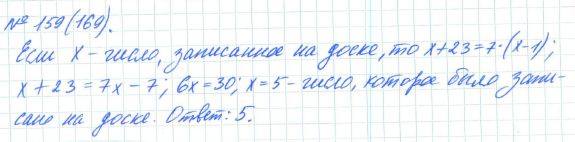 № 159(169).
Если x - число, записанное на доске, то x+23=7·(x-1);
x+23=7x-7; 6x=30; x=5 - число, которое было запи-
сано на доске. Ответ: 5.